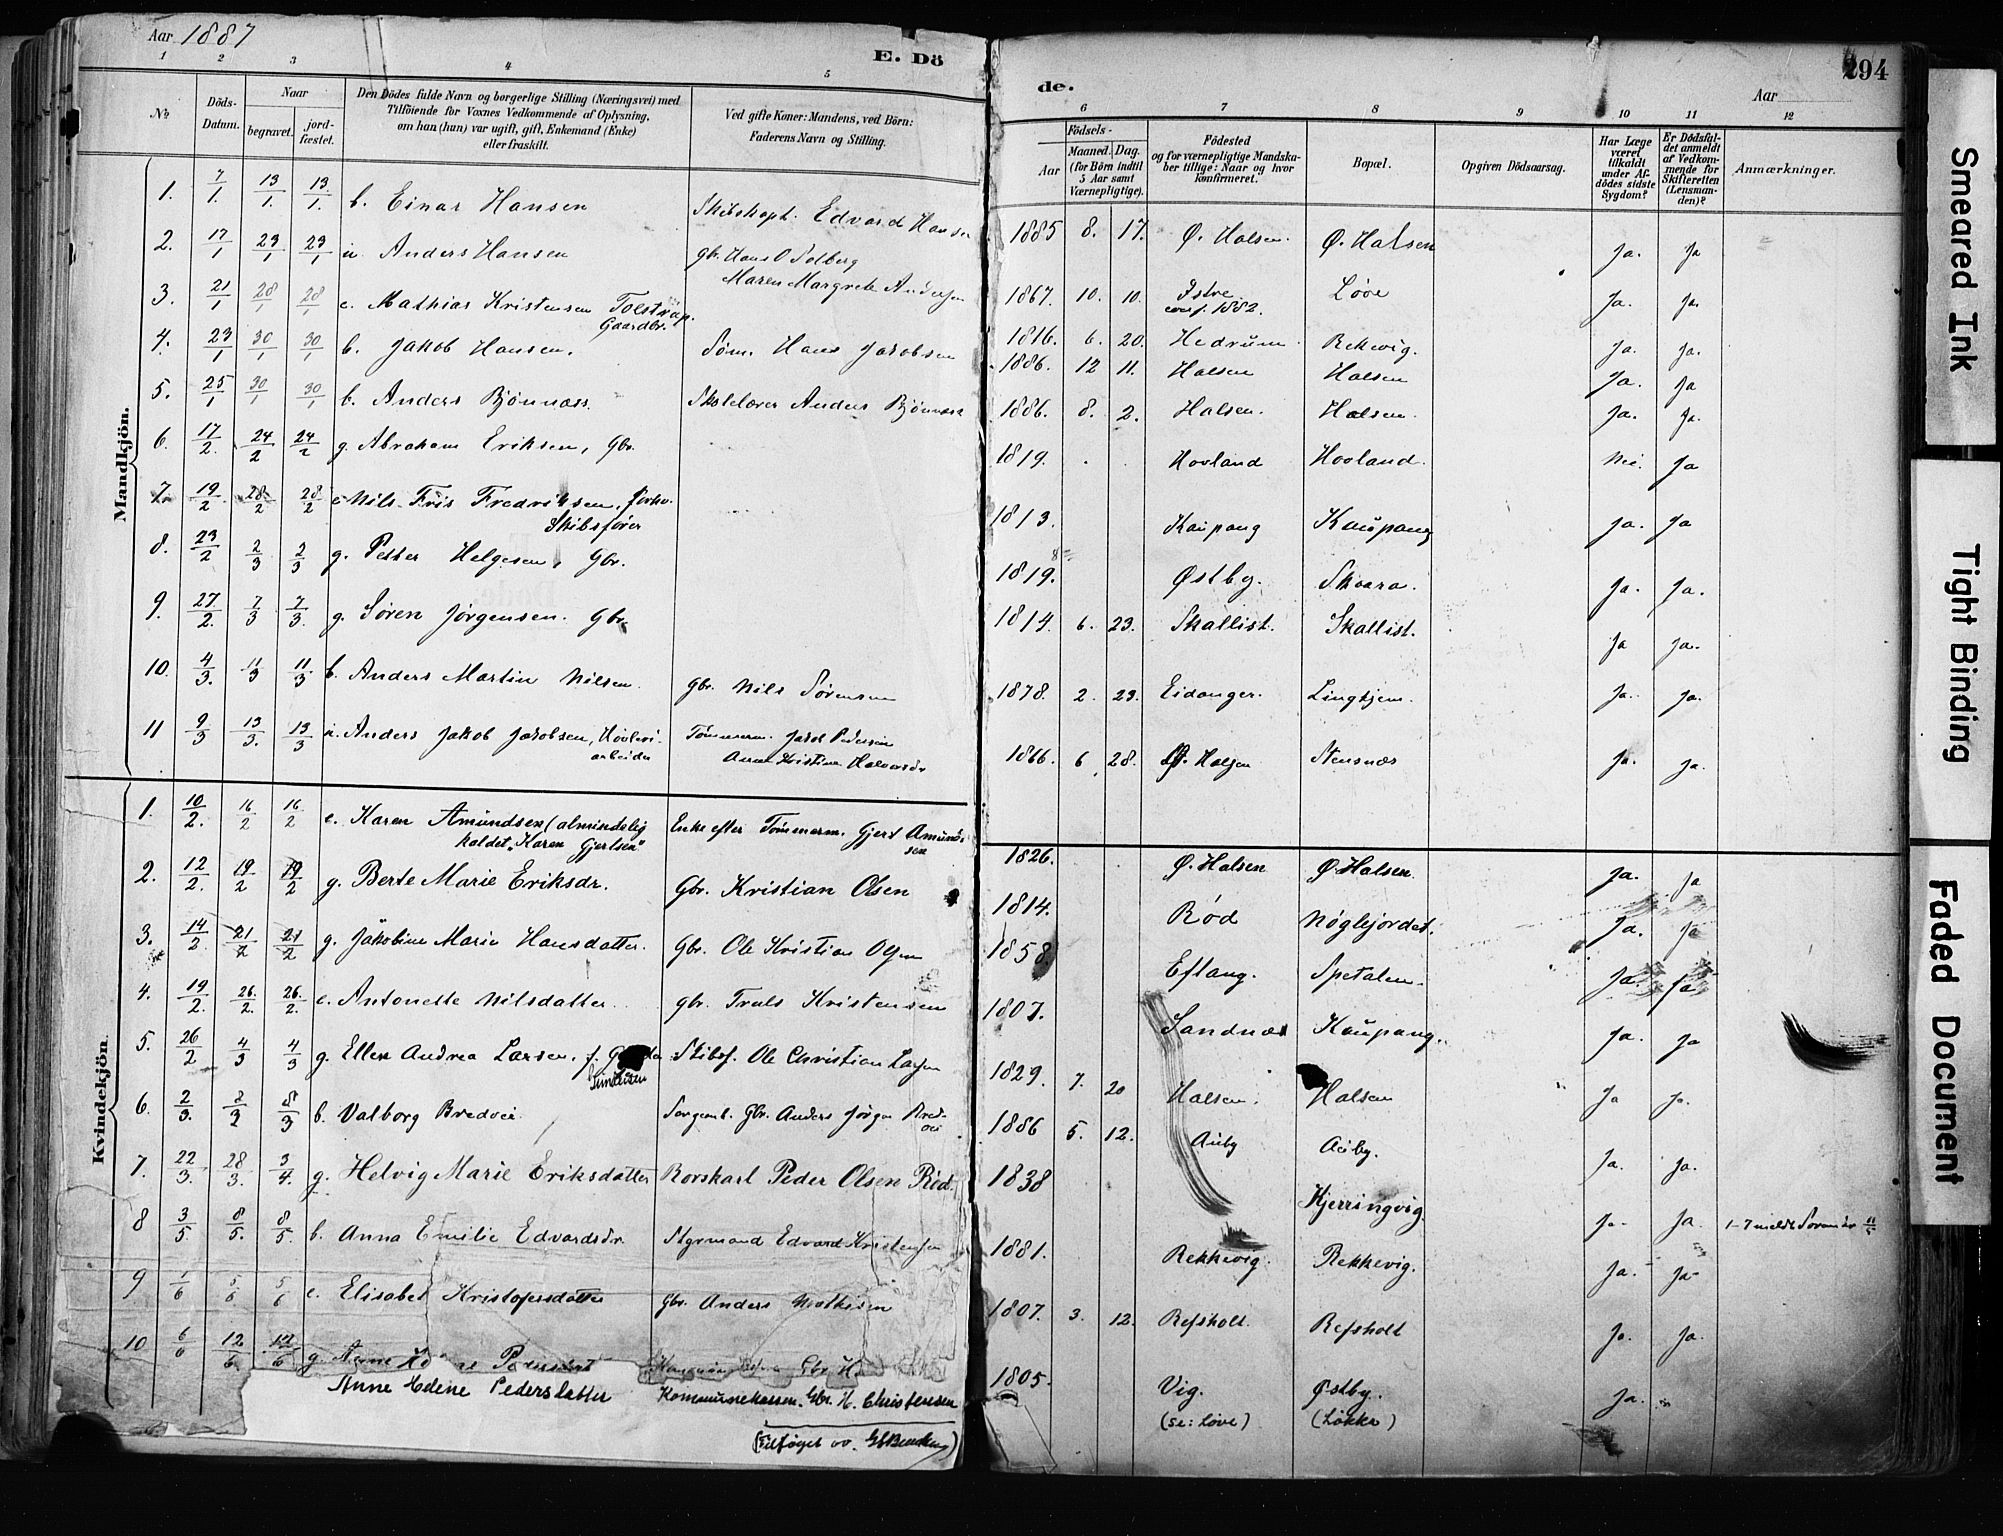 Aar 1887
E. Dö
1 2 3 4 5
No
Döds-Datum.
Naar
begravet. jord-fæstet.
Den Dödes fulde Navn og borgerlige Stilling (Næringsvei) med
Tilföiende for Voxnes Vedkommende af Oplysning,
om han (hun) var ugift, gift, Enkemand (Enke)
eller fraskilt.
Ved gifte Koner: Mandens, ved Börn:
Faderens Navn og Stilling.
Mandkjön.
1. 7/1. 13/1. 13/1. b. Einar Hansen Skibskapt. Edvard Hansen
2. 17/1 23/1 23/1 u. Anders Hansen Gbr. Hans O Solberg
Maren Margrete Andersen
3. 21/1 28/1 28/1 e. Mathias Kristensen Tolstrup.
Gaardbr.
4. 23/1 30/1 30/1 b. Jakob Hansen. Søm. Hans Jakobsen
5. 25/1 30/1 30/1 b. Anders Bjönnæss. Skolelærer Anders Bjönnæss
6. 17/2. 24/2 24/2 g. Abraham Eriksen, Gbr.
7. 19/2 28/2 28/2 e Nils Friis Fredriksen, forhv.
Skibsfører
8. 23/2 2/3 2/3 g. Petter Helgesen, Gbr.
9. 27/2. 7/3 7/3. g. Søren Jørgensen. Gbr.
10. 4/3. 11/3 11/3 b. Anders Martin Nilsen. Gbr. Nils Sørensen
11 9/3 13/3. 13/3 u. Anders Jakob Jakobsen, Høvleri-
arbeider
Tömmerm. Jakob Pedersen
Anne Kristine Halvorsdr
Kvindekjön.
1. 10/2. 16/2 16/2 e. Karen Amundsen (almindelig
kaldet "Karen Gjertsen"
Enke efter Tømmerm. Gjert Amund-
sen
2. 12/2. 19/2 19/2 g. Berte Marie Eriksdr. Gbr. Kristian Olsen
3. 14/2 21/2 21/2 g. Jakobine Marie Hansdatter. Gbr. Ole Kristian Olsen
4. 19/2. 26/2. 26/2. e. Antonette Nilsdatter Gbr. Truls Kristensen
5. 26/2 4/3 4/3 g. Ellen Andrea Larsen, f. Skibsf. Ole Christian Larsen
6. 2/3. 8/3 8/3 b. Valborg Bredvei Gbr. Anders Jörgen Bred-
vei
7. 22/3. 28/3. 3/4. g. Helvig Marie Eriksdatter Rorskarl Peder Olsen Röd.
8 3/5 8/5. 8/5. b. Anna Emilie Edvardsdr. Styrmand Edvard Kristensen
9 1/6 5/6 5/6 e. Elisabet Kristofersdatter Gbr. Anders Mathisen
10 6/6 12/6 12/6 g Anne Pedersdat Gbr H.
Anne Helene Pedersdatter Kommunekassen. Gbr. H. Christensen
(Tilføiet av.
294
de. Aar
6 7 8 9 10 11 12
Födsels-
Aar
Maaned. Dag.
(for Börn indtil
5 Aar samt
Værnepligtige).
Födested
og for værnepligtige Mandska-
ber tillige: Naar og hvor
konfirmeret.
Bopæl.
Opgiven Dödsaarsag.
Har Læge
været
tilkaldt
under Af-
dödes sidste
Sygdom?
Er Dödsfal-
det anmeldt
af Vedkom-
mende for
Skifteretten
(Lensman-
den)?
Anmærkninger.
1885 8. 17. Ø. Halsen. Ø. Halsen Ja. Ja
1867. 10. 10. Istre Løve Ja. Ja.
conf. 1882.
1816. 6. 20. Hedrum Rekevig. Ja. Ja.
1886. 12 11. Halsen Halsen Ja. Ja
1886. 8. 2. Halsen. Halsen. Ja. Ja.
1819. . . Hovland Hovland. Nei. Ja
1813. Kaupang Kaupang Ja. Ja
1819. Østby. Skaara. Ja. Ja.
1814. 6. 23. Skallist. Skallist. Ja Ja.
1878. 2. 23. Eidanger. Lingkjem. Ja. Ja.
1866. 6 28. Ø. Halsen Stensnæs Ja. Ja.
1826. Ø. Halsen Ø. Halsen. Ja. Ja
1814. Rød Nøglejordet. Ja. Ja
1858. Eftang. Spetalen. Ja. Ja
1807. Sandnæs Kaupang. Ja. Ja
1829. 7. 20 Halsen. Halsen Ja Ja.
1886 5. 12. Auby Auby. Ja. Ja.
1838 Kjerringvig Ja. Ja. 1-7 meldt
1881. Rekkevig. Rekkevig. Ja. Ja
1807. 3. 12. Refsholt. Refsholt Ja. Ja.
1805. Vig. Østby. Ja.
(se: Løve) (Løkke)
Smeared Ink
Tight Binding
Faded Document